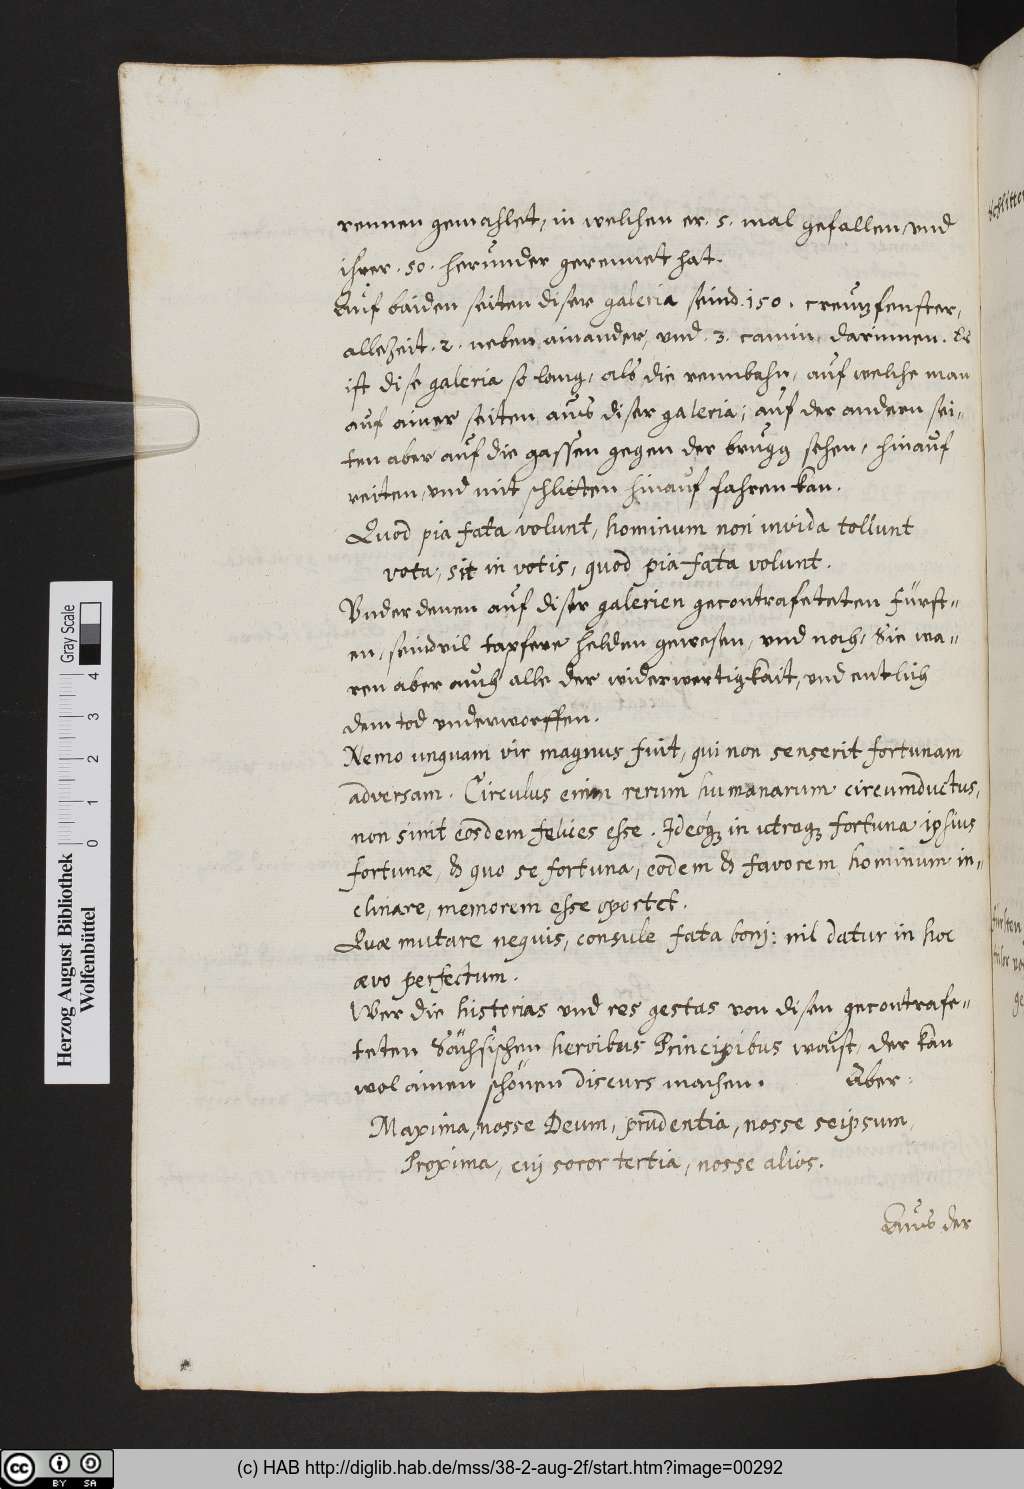 rennen gemahlet, in welchen er . 5 . mal gefallen, und
ihrer . 50 . herunder gerennet hat.
Auf baiden seiten diser galeria seind . 150 . creuzfenster,
allezeit . 2 . neben ainander, und . 3 . camin darinnen. Es
ist dise galeria so lang, als die rennbahn, auf welche man
auf ainer seiten aus diser galeria; auf der andern sei=
ten aber auf die gassen gegen der brugg sehen, hinauf
reiten, und mit schlitten hinauf fahren kan.
Quod pia fata volunt, hominum non invida tollunt
vota, sit in votis, quod pia fata volunt.
Vnder denen auf diser galerien gecontrafeteten Fürst=
en, seind vil tapfere helden gewesen, und noch, Sie wa=
ren aber auch alle der widerwertigkait, und entlich
dem tod underworffen.
Nemo unquam vir magnus fuit, qui non senserit fortunam
adversam. Circulus enim rerum humanarum circumductus,
non sinit eosdem felices esse. Ideoq; in utraq; fortuna ipsius
fortunæ, & quo se fortuna, eodem & favorem hominum in=
clinare, memorem esse oportet.
Quæ mutare nequis, consule fata bonj: nil datur in hoc
ævo perfectum.
Wer die historias und res gestas von disen gecontrafe=
teten Sächsischen heroibus Principibus waist, der kan
wol ainen schönen discurs machen. Aber:
Maxima, nosse Deum, prudentia, nosse seipsum,
Proxima, cuj soror tertia, nosse alios.
Aus der
schlitten
fürsten
Herzog August Bibliothek
Wolfenbüttel
Gray Scale
0 1 2 3 4
(c) HAB http://diglib.hab.de/mss/38-2-aug-2f/start.htm?image=00292
cc BY SA